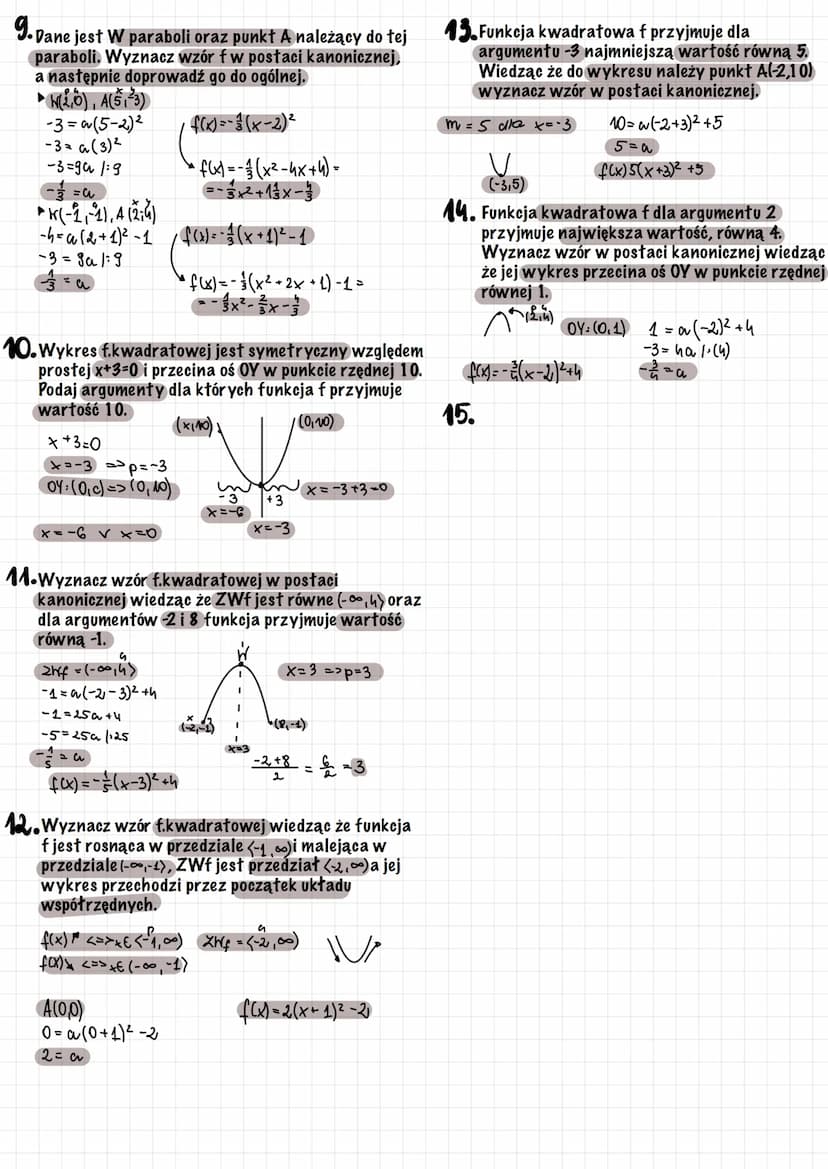 9. Dane jest W paraboli oraz punkt A należący do tej
paraboli. Wyznacz wzór f w postaci kanonicznej,
a następnie doprowadź go do ogólnej.
W(2,0), A(5,-3)
-3=a(5-2)²
-3=a(3)²
-3=9a /:9
-1/3=a
f(x)=-1/3(x-2)²
f(x)=-1/3(x²-4x+4)=
=-1/3x²+1 1/3x-4/3
W(-1,-1), A(2,-4)
-4=a(2+1)²-1
-3=9a /:9
-1/3=a
f(x)=-1/3(x+1)²-1
f(x)=-1/3(x²+2x+1)-1=
=-1/3x²-2/3x-4/3
10. Wykres f.kwadratowej jest symetryczny względem
prostej x+3=0 i przecina oś OY w punkcie rzędnej 10.
Podaj argumenty dla których funkcja f przyjmuje
wartość 10.
x+3=0
x=-3 => p=-3
OY:(0,c)=>(0,10)
x=-6 v x=0
(x,10)
(0,10)
-3 +3
x=-3+3=0
x=-6
x=-3
11. Wyznacz wzór f.kwadratowej w postaci
kanonicznej wiedząc że ZWf jest równe (-∞,4> oraz
dla argumentów -2 i 8 funkcja przyjmuje wartość
równą -1.
q
ZWf=(-∞,4>
-1=a(-2-3)²+4
-1=25a+4
-5=25a /:25
-1/5=a
f(x)=-1/5(x-3)²+4
W
x=3 =>p=3
(-2,-1)
(8,-1)
x=3
-2+8/2=6/2=3
12. Wyznacz wzór f.kwadratowej wiedząc że funkcja
f jest rosnąca w przedziale <-1,∞) i malejąca w
przedziale (-∞,-1>, ZWf jest przedział <-2,∞) a jej
wykres przechodzi przez początek układu
współrzędnych.
f(x)↗ <=>x∈<-1,∞) ZWf=<-2,∞)
f(x)↘ <=>x∈(-∞,-1>
A(0,0)
0=a(0+1)²-2
2=a
f(x)=2(x+1)²-2
13. Funkcja kwadratowa f przyjmuje dla
argumentu -3 najmniejszą wartość równą 5.
Wiedząc że do wykresu należy punkt A(-2,10)
wyznacz wzór w postaci kanonicznej.
m=5 dla x=-3
(-3,5)
10=a(-2+3)²+5
5=a
f(x)5(x+3)²+5
14. Funkcja kwadratowa f dla argumentu 2
przyjmuje największa wartość, równą 4.
Wyznacz wzór w postaci kanonicznej wiedząc
że jej wykres przecina oś OY w punkcie rzędnej
równej 1.
(2,4)
OY:(0,1)
1=a(-2)²+4
-3=4a /:(4)
-3/4=a
f(x)=-3/4(x-2)²+4
15.